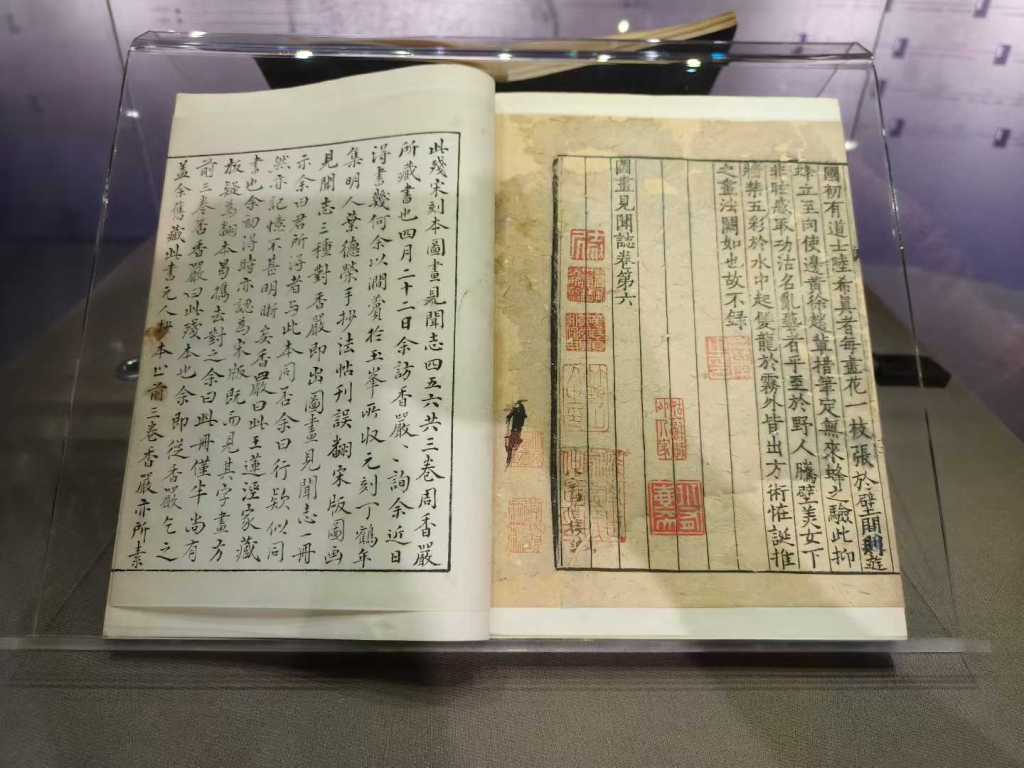 國初有道士陸希真者每畫花一枝張於壁間則遊
蜂立至向使邊黃徐趙輩措筆定無來蜂之驗此抑
非眩惑取功沽名亂藝者乎至於野人騰壁美女下
牆禁五彩於水中起雙龍於霧外皆出方術怪誕推
之畫法闕如也故不錄
圖畫見聞誌卷第六
此殘宋刻本圖畫見聞志四五六共三卷周香嚴
所藏書也四月二十二日余訪香嚴、詢余近日
得書幾何余以澗薲於玉峯所收元刻丁鶴年
集明人葉德榮手抄法帖刊誤翻宋版圖画
見聞志三種對香嚴即出圖畫見聞志一冊
示余曰君所得者与此本同否余曰行欵似同
然亦記憶不甚明晰矣香嚴曰此王蓮涇家藏
書也余初得時亦認為宋版既而見其字畫方
板疑為翻本曷携去對之余曰此冊僅半尚有
前三卷否香嚴曰此殘本也余即從香嚴乞之
盖余舊藏此書元人抄本止前三卷香嚴亦所素